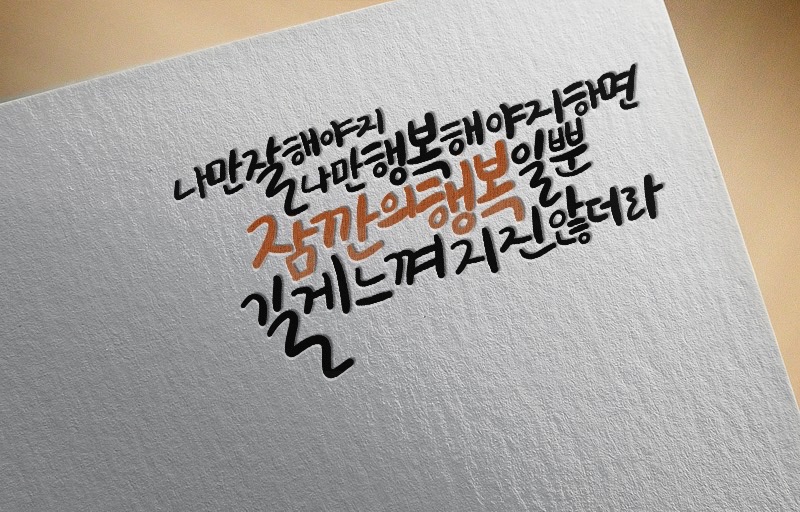 나만잘해야지
나만행복해야지하면
잠깐의행복일뿐
길게느껴지진않더라